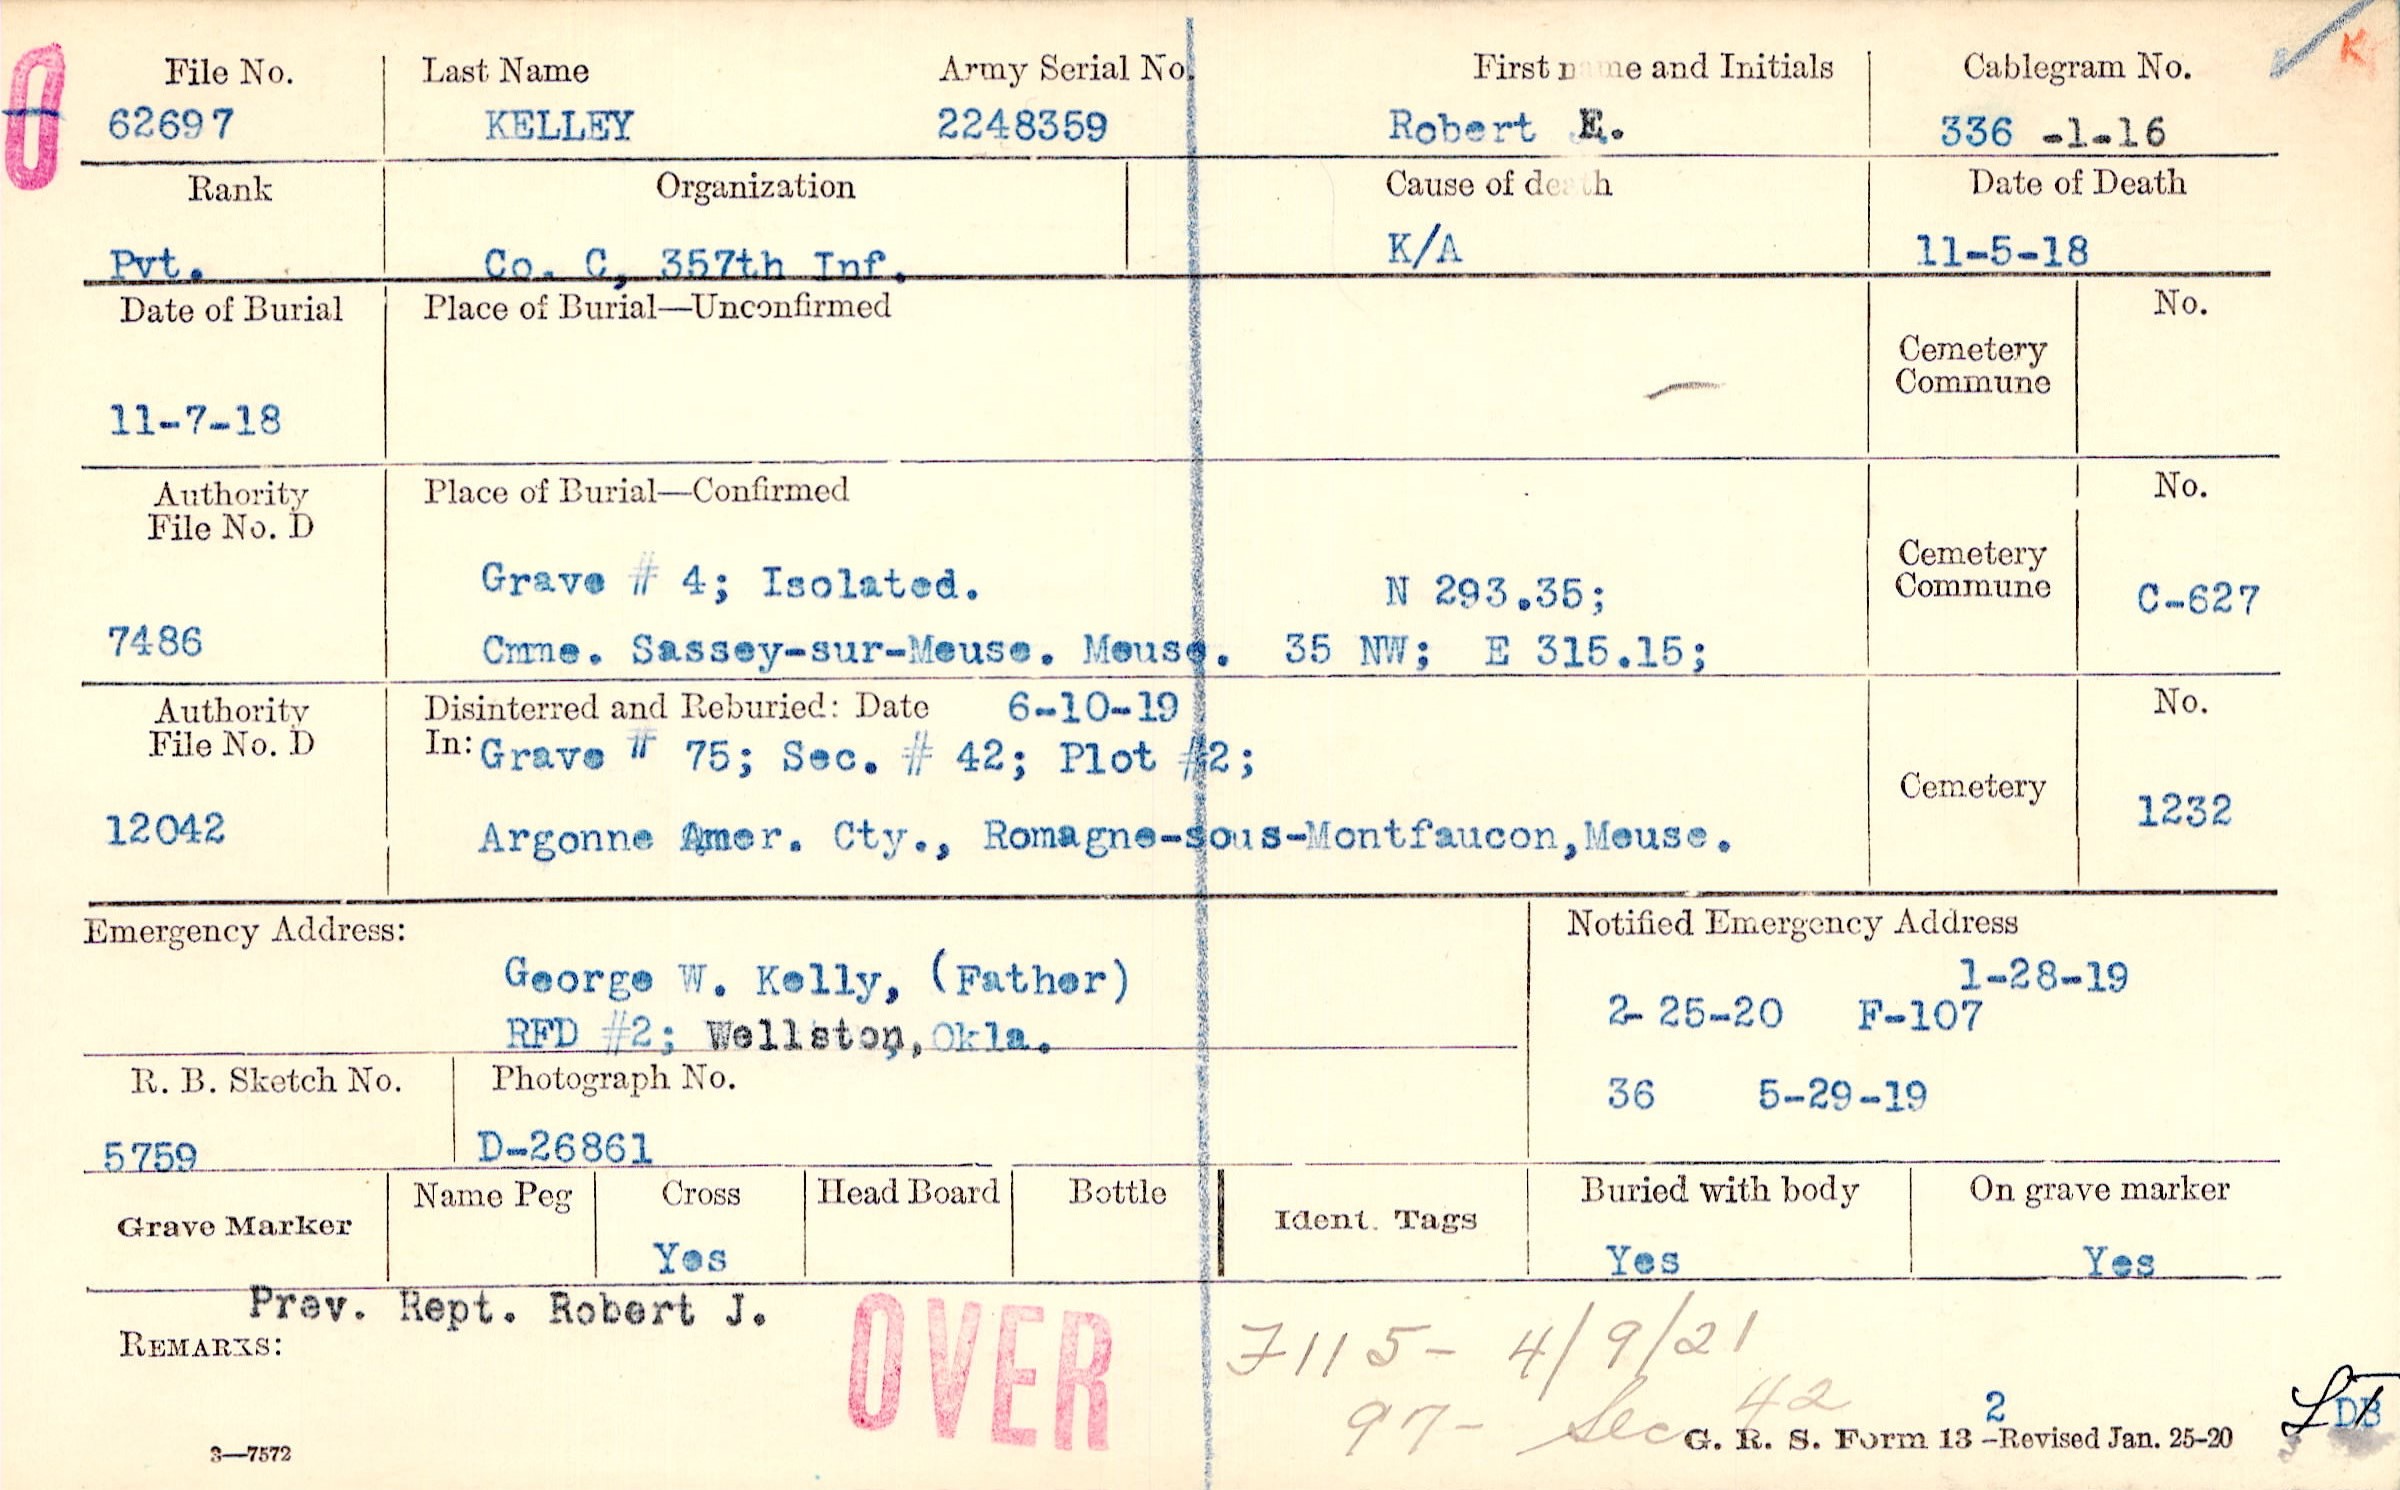 File No. Last Name Army Serial No. First name and Initials Cablegram No.
62697 KELLEY 2248359 Robert E. 336 -1-16
Rank Organization Cause of death Date of Death
Pvt. Co. C, 357th Inf. K/A 11-5-18
Date of Burial Place of Burial—Unconfirmed No.
Cemetery
Commune
11-7-18
Authority Place of Burial—Confirmed No.
File No. D
Cemetery
Commune
Grave # 4; Isolated. N 293.35; C-627
7486 Cmne. Sassey-sur-Meuse. Meuse. 35 NW; E 315.15;
Authority Disinterred and Reburied: Date 6-10-19 No.
File No. D In: Grave # 75; Sec. # 42; Plot #2;
Cemetery
12042 Argonne Amer. Cty., Romagne-sous-Montfaucon,Meuse. 1232
Emergency Address: Notified Emergency Address
George W. Kelly, (Father) 1-28-19
2-25-20 F-107
RFD #2; Wellston, Okla.
R. B. Sketch No. Photograph No. 36 5-29-19
5759 D-26861
Grave Marker Name Peg Cross Head Board Bottle Ident. Tags Buried with body On grave marker
Yes Yes Yes
Prev. Rept. Robert J.
REMARKS:
OVER
F115- 4/9/21
97- Sec 42
2
3—7572 G. R. S. Form 13 -Revised Jan. 25-20
DB
K